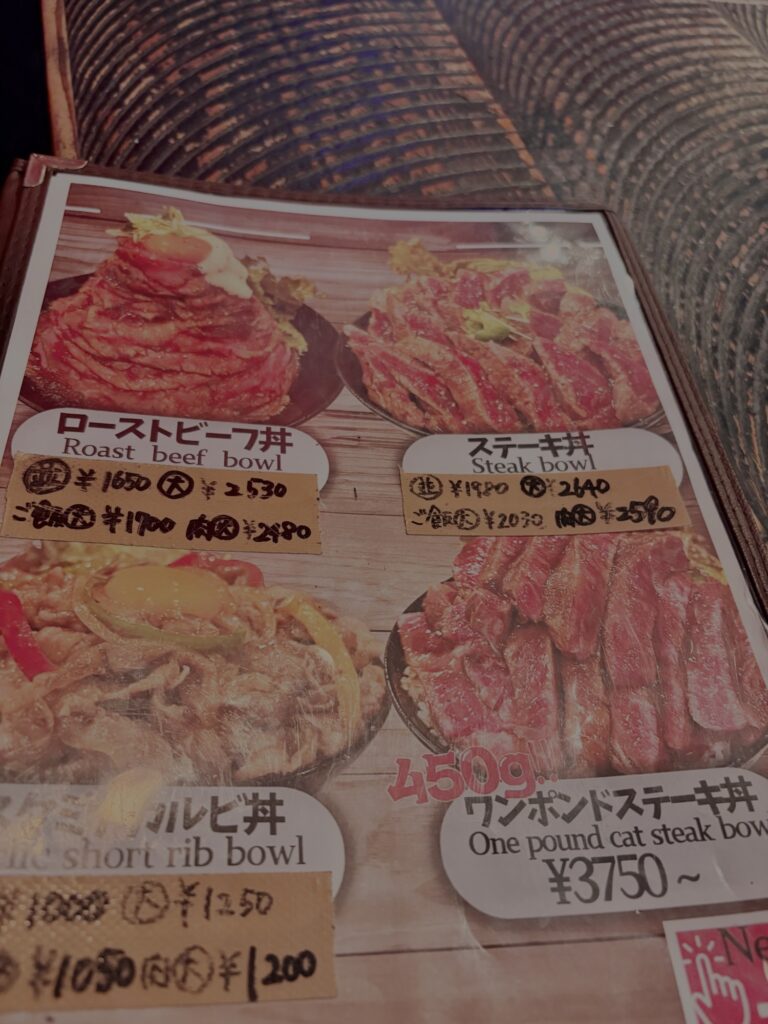 ローストビーフ丼
Roast beef bowl
並 ¥1650 大 ¥2530
ご飯大 ¥1700 肉大 ¥2480
ステーキ丼
Steak bowl
並 ¥1980 大 ¥2640
ご飯大 ¥2030 肉大 ¥2590
カルビ丼
short rib bowl
¥1000 大 ¥1250
¥1050 肉大 ¥1200
450g!!
ワンポンドステーキ丼
One pound cat steak bow
¥3750~
Ne